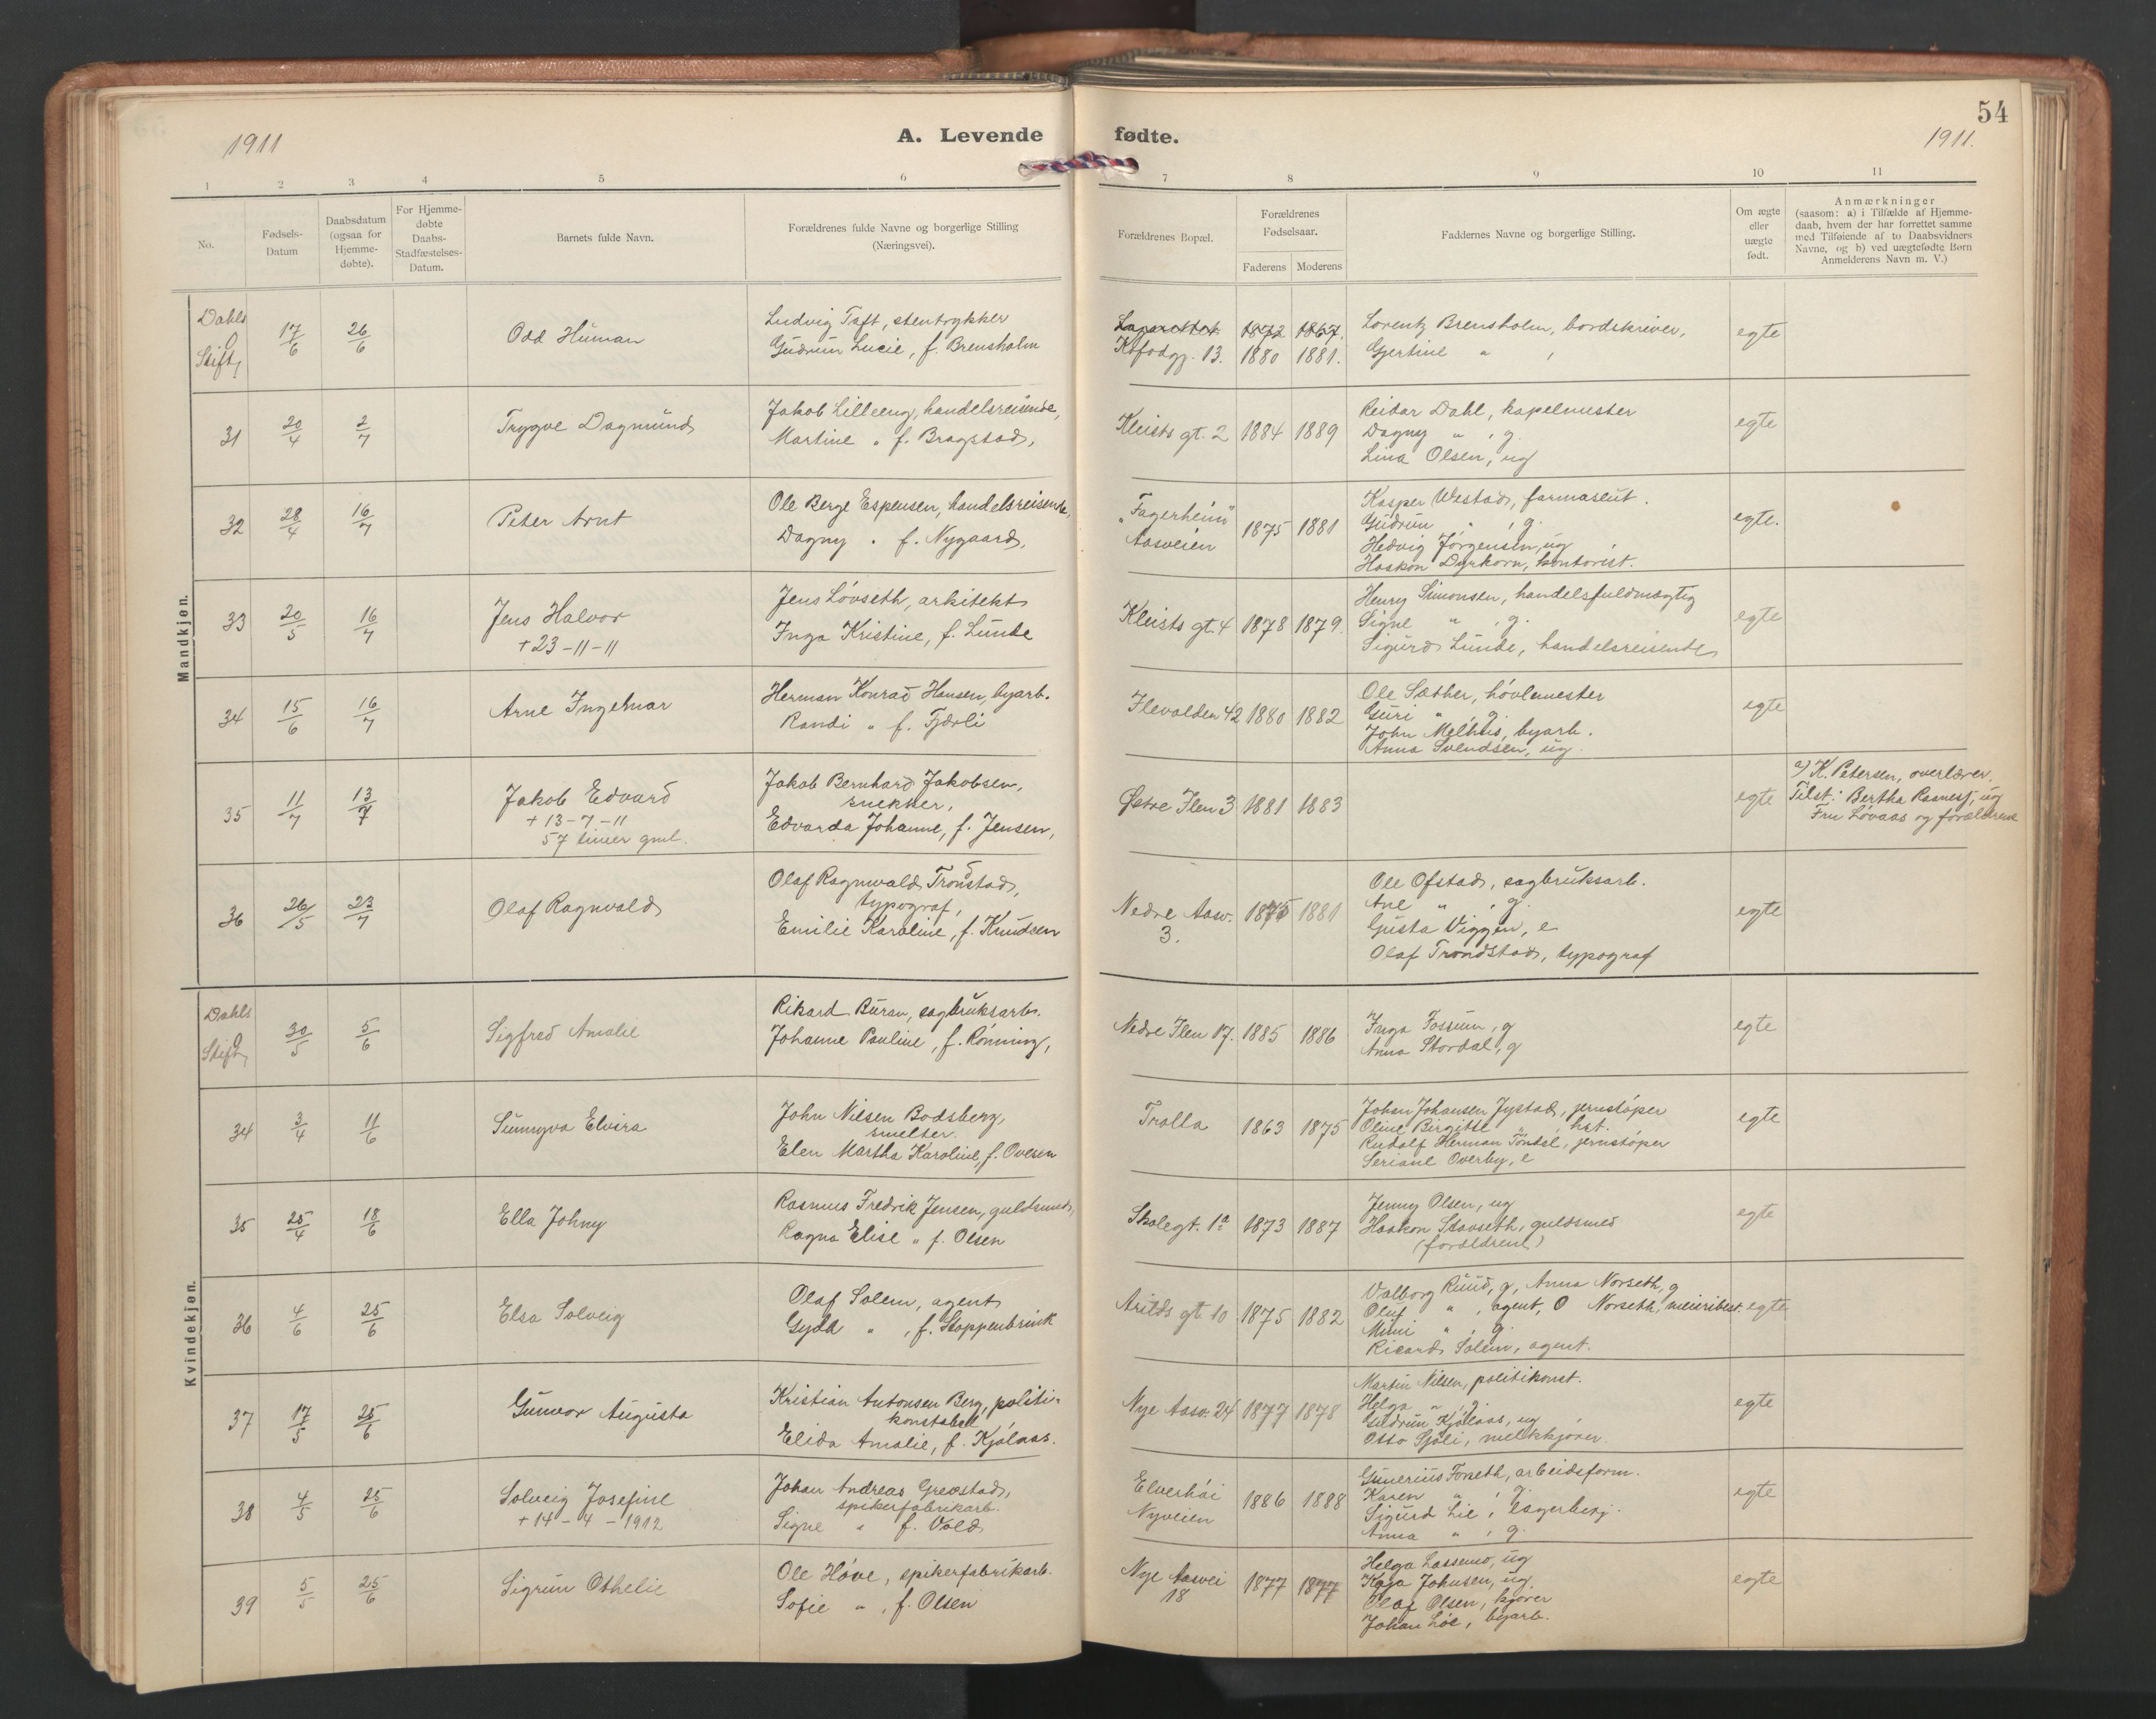 54
1911
A. Levende fødte.
1911.
1 2 3 4 5 6 7 8 9 10 11
No.
Fødsels-
Datum
Daabsdatum
(ogsaa for
Hjemme-
døbte).
For Hjemme-
døbte
Daabs-
Stadfæstelses-
Datum.
Barnets fulde Navn.
Forældrenes fulde Navne og borgerlige Stilling
(Næringsvei).
Forældrenes Bopæl.
Forældrenes
Fødselsaar.
Faderens Moderens
Faddernes Navne og borgerlige Stilling.
Om ægte
eller
uægte
født.
Anmærkninger
(saasom: a) i Tilfælde af Hjemme-
daab, hvem der har forrettet samme
med Tilføiende af to Daabsvidners
Navne, og b) ved uægtefødte Børn
Anmelderens Navn m. V.)
Mandkjøn.
Dahls
Stift,
17/6 26/6
Odd Human
Ludvig Toft, stentrykker
Gudrun Lucie, f. Brensholm
Lazarettet. 1872 1867.
Kofodgj. 13. 1880 1881.
Lorentz Brensholm, bordskriver,
Gjertine " ,
egte
31 20/4 2/7
Trygve Dagmund
Jakob Lilleeng, handelsreisende,
Martine " f. Bragstad,
Kleists gt. 2 1884 1889
Reidar Dahl, kapelmester
Dagny " , g.
Lina Olsen, ug
egte
32 28/4 16/7
Peter Arnt
Ole Berge Espensen, handelsreisende,
Dagny " f. Nygaard,
"Fagerheim"
Aasveien
1875 1881
Kasper Westad, farmaseut.
Gudrun " , g.
Hedvig Jørgensen, ug
Haakon Dyrkorn, kontorist.
egte.
33 20/5 16/7
Jens Halvor
+ 23-11-11
Jens Løvseth, arkitekt
Inga Kristine, f. Lunde
Kleists gt. 4 1878 1879.
Henry Simonsen, handelsfuldmægtig
Signe " , g.
Sigurd Lunde, handelsreisende
egte
34 15/6 16/7
Arne Ingelmar
Herman Konrad Hansen, byarb.
Randi " f. Fjærli
Ilevolden 42 1880 1882
Ole Sæther, høvlemester
Guri " , g.
John Melhus, byarb.
Anna Svendsen, ug.
egte
35 11/7 13/7
Jakob Edvard
+ 13-7-11
57 timer gml.
Jakob Bernhard Jakobsen,
snekker,
Edvarda Johanne, f. Jensen,
Østre Ilen 3 1881 1883
egte
a) K. Petersen, overlærer.
Tilst: Bertha Rasnes, ug
Fru Løvaas og forældrene
36 26/5 23/7
Olaf Ragnvald
Olaf Ragnvald Tronstad,
typograf,
Emilie Karoline, f. Knudsen
Nedre Aasv.
3.
1875 1881
Ole Ofstad, sagbruksarb.
Ane " , g.
Gusta Viggen, e
Olaf Trondstad, typograf
egte
Kvindekjøn.
Dahls
Stift,
30/5 5/6
Sigfred Amalie
Rikard Buran, sagbruksarb.
Johanne Pauline, f. Rønning,
Nedre Ilen 17. 1885 1886
Inga Fossum, g
Anna Stordal, g
egte
34 3/4 11/6
Sunnyva Elvira
John Nilsen Bodsberg,
smelter.
Elen Martha Karoline, f. Ovesen
Trolla 1863 1875
Johan Johansen Jystad, jernstøper
Oline Birgitte " , hst.
Rudolf Herman Tøndel, jernstøper
Seriane Overby, e
egte
35 25/4 18/6
Ella Johny
Rasmus Fredrik Jensen, guldsmed,
Ragna Elise " f. Olsen
Skolegt. 1a 1873 1887
Jenny Olsen, ug
Haakon Stavseth, guldsmed
(forældrene)
egte
36 4/6 25/6
Elsa Solveig
Olaf Solem, agent
Gyda " , f. Stoppenbrink
Arilds gt. 10 1875 1882
Valborg Ruud, g, Anna Norseth, g
Oluf " , agent, O Norseth, meieribest.
Mimi " , g.
Ricard Solem, agent.
egte
37 17/5 25/6
Gunvor Augusta
Kristian Antonsen Berg, politi-
konstabell
Elida Amalie, f. Kjølaas.
Nye Aasv. 24 1877 1878
Martin Nilsen, politikonst.
Helga " , g.
Gudrun Kjølaas, ug
Otto Sjøli, melkkjører.
egte
38 4/5 25/6
Solveig Josefine
+ 14-4-1912
Johan Andreas Grevstad,
spikerfabrikarb.
Signe " f. Vold
Elverhøi
Nyveien
1886 1888
Gunerius Forseth, arbeidsform.
Karen " , g.
Sigurd Lie, lagerbetj.
Anna " , g.
egte
39 5/5 25/6
Sigrun Othelie
Ole Høve, spikerfabrikarb.
Sofie " , f. Olsen
Nye Aasvei
18
1877 1877
Helga Lassemo, ug
Kaja Johnsen, ug.
Olaf Olsen, kjører
Johan Løe, byarb.
egte